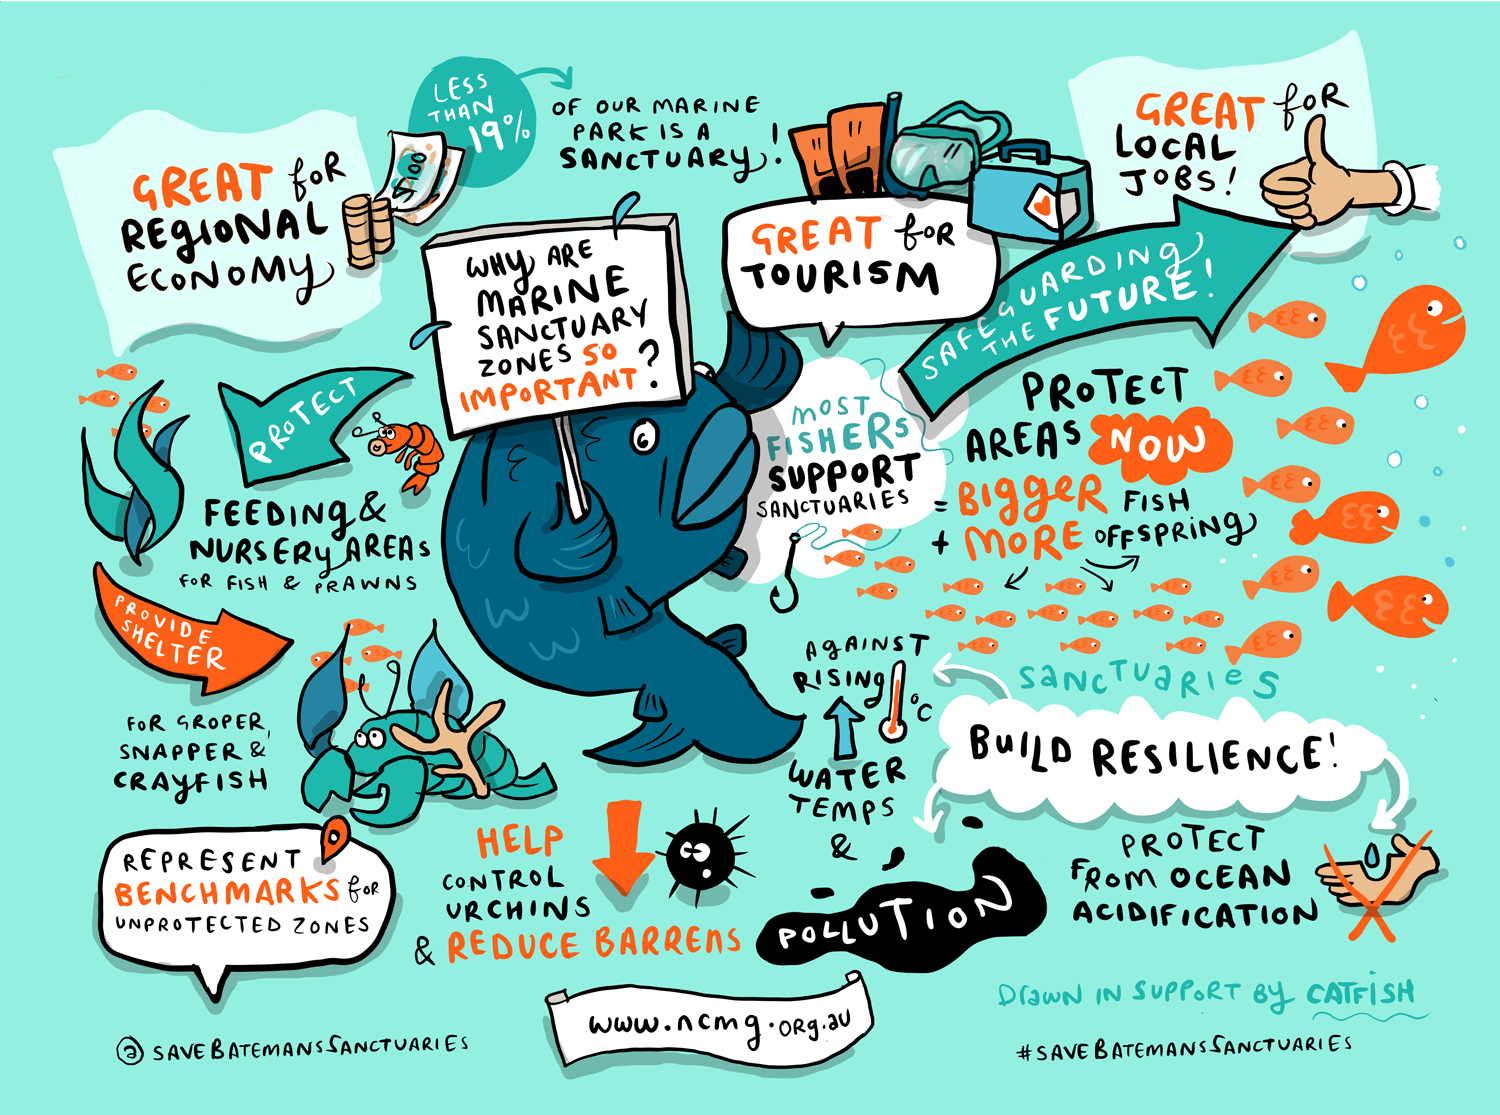 LESS
THAN
19%
OF OUR MARINE
PARK IS A
SANCTUARY!
GREAT for
REGIONAL
ECONOMY
$100
WHY ARE
MARINE
SANCTUARY
ZONES SO
IMPORTANT?
GREAT for
TOURISM
GREAT for
LOCAL
JOBS!
SAFEGUARDING
THE FUTURE!
MOST
FISHERS
SUPPORT
SANCTUARIES
PROTECT
AREAS NOW
= BIGGER FISH
+ MORE OFFSPRING
PROTECT
FEEDING &
NURSERY AREAS
FOR FISH & PRAWNS
PROVIDE
SHELTER
FOR GROPER,
SNAPPER &
CRAYFISH
REPRESENT
BENCHMARKS for
UNPROTECTED ZONES
HELP
CONTROL
URCHINS
& REDUCE BARRENS
SANCTUARIES
BUILD RESILIENCE!
AGAINST
RISING
°C
WATER
TEMPS
&
POLLUTION
PROTECT
FROM OCEAN
ACIDIFICATION
DRAWN IN SUPPORT BY CATFISH
www.ncmg.org.au
@SAVEBATEMANSSANCTUARIES
#SAVEBATEMANSSANCTUARIES